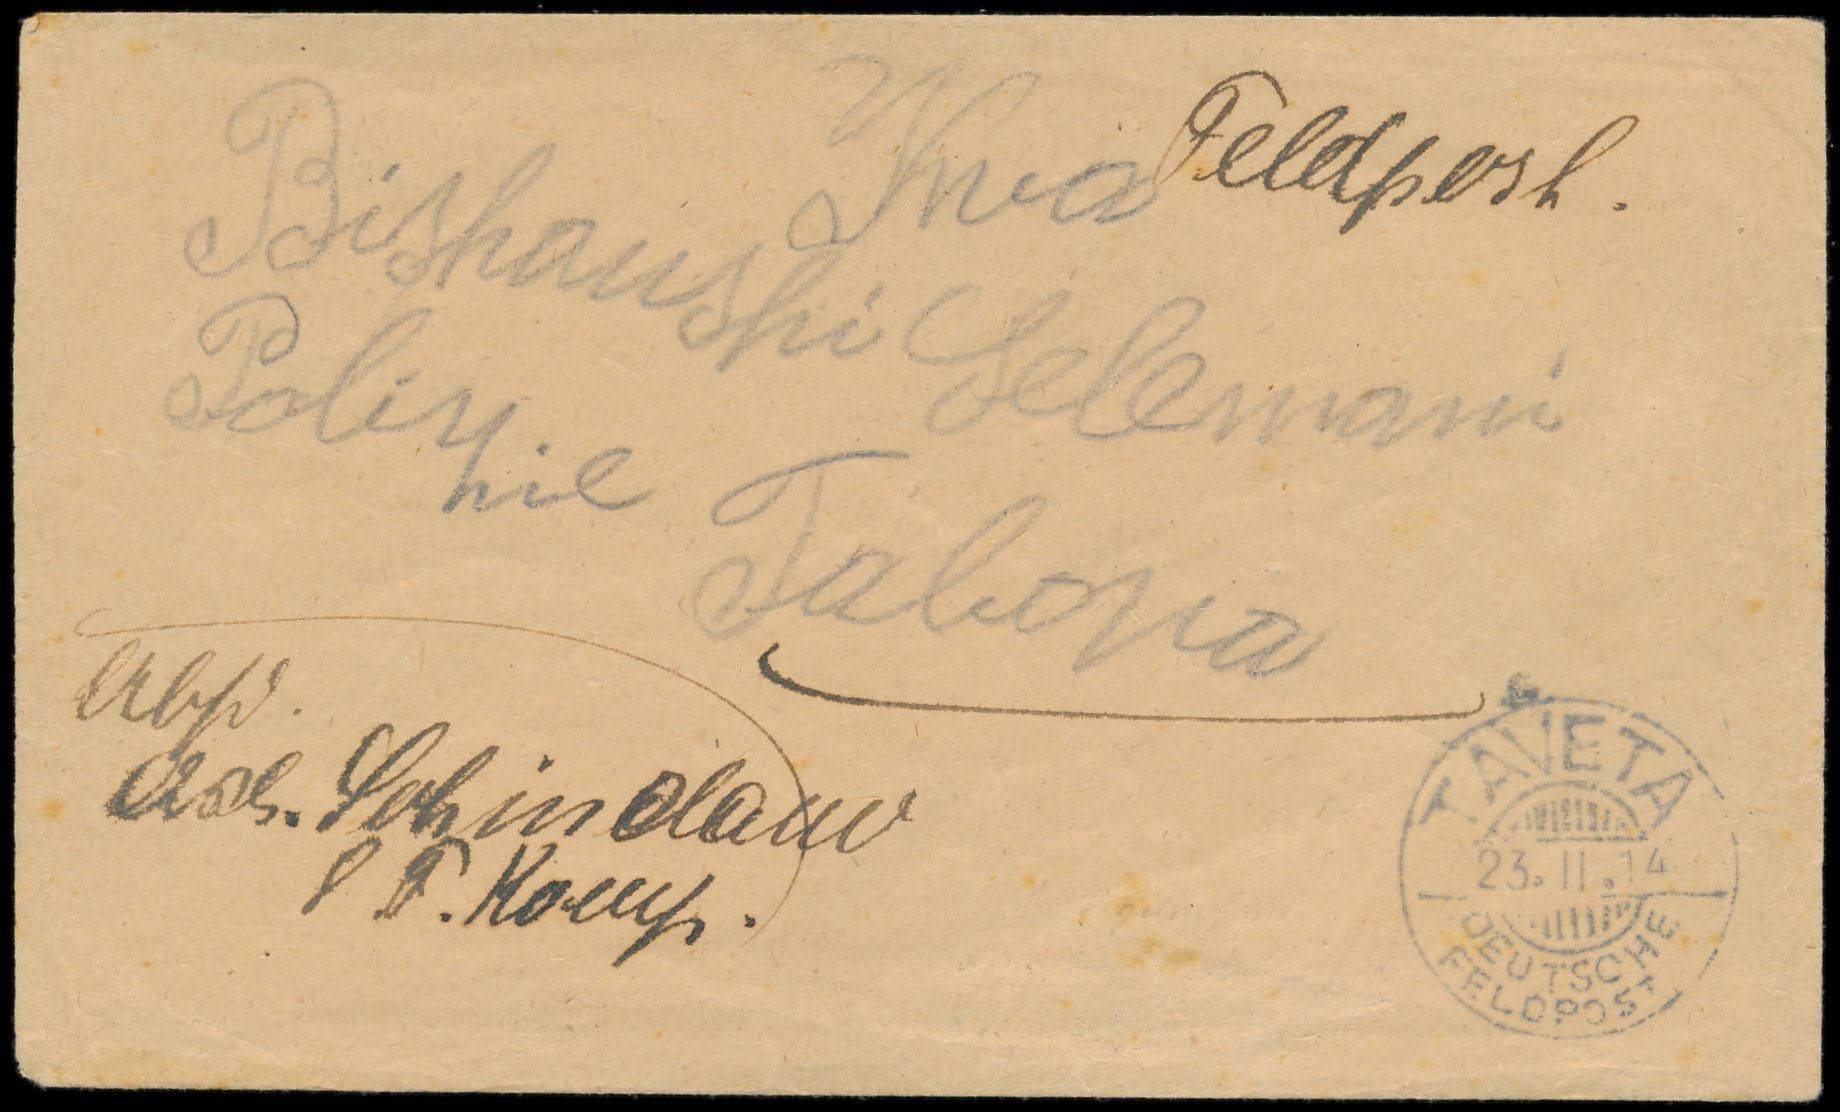 Kwa Feldpost.
Bishaushi Selemani
Polizy.
hie Tabora
Abs.
Ask. Schindauw
8 F. Komp.
TAVETA
23. 11. 14
DEUTSCHE
FELDPOST